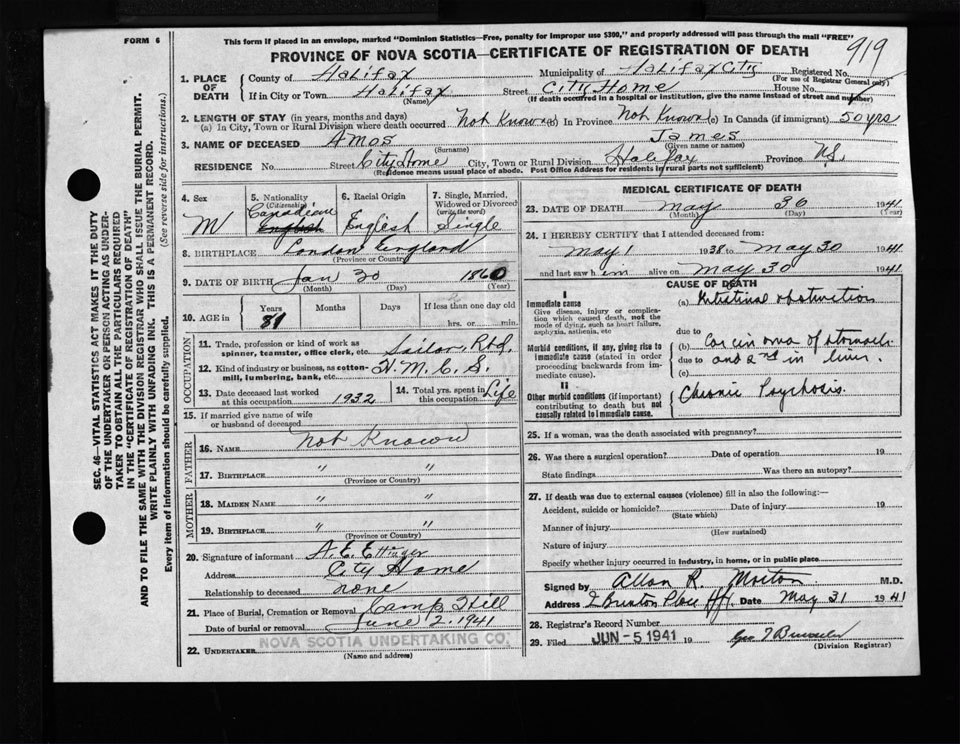 FORM 6
This form if placed in an envelope, marked "Dominion Statistics—Free, penalty for improper use $300," and properly addressed will pass through the mail "FREE"
PROVINCE OF NOVA SCOTIA—CERTIFICATE OF REGISTRATION OF DEATH
919
1. PLACE OF DEATH
County of Halifax Municipality of Halifax City Registered No.
(For use of Registrar General only)
If in City or Town Halifax Street City Home House No.
(Name) (If death occurred in a hospital or institution, give the name instead of street and number)
2. LENGTH OF STAY (in years, months and days)
(a) In City, Town or Rural Division where death occurred Not Known (b) In Province Not Known (c) In Canada (if immigrant) 50 yrs
3. NAME OF DECEASED Amos James
(Surname) (Given name or names)
RESIDENCE No. Street City Home City, Town or Rural Division Halifax Province N.S.
(Residence means usual place of abode. Post Office Address for residents in rural parts not sufficient)
4. Sex
M
5. Nationality
(Citizenship)
Canadian
English
6. Racial Origin
English
7. Single, Married, Widowed or Divorced
(write the word)
Single
8. BIRTHPLACE London England
(Province or Country)
9. DATE OF BIRTH Jan 30 1860
(Month) (Day) (Year)
10. AGE in
Years
81
Months
Days
If less than one day old
hrs. or min.
OCCUPATION
11. Trade, profession or kind of work as spinner, teamster, office clerk, etc. Sailor, Rtd.
12. Kind of industry or business, as cotton-mill, lumbering, bank, etc. H.M.C.S.
13. Date deceased last worked at this occupation 1932
14. Total yrs. spent in this occupation Life
15. If married give name of wife or husband of deceased
FATHER
16. NAME Not Known
17. BIRTHPLACE " "
(Province or Country)
MOTHER
18. MAIDEN NAME " "
19. BIRTHPLACE " "
(Province or Country)
20. Signature of informant A. E. Ettinger
Address City Home
Relationship to deceased none
21. Place of Burial, Cremation or Removal Camp Hill
Date of burial or removal June 2, 1941
22. UNDERTAKER NOVA SCOTIA UNDERTAKING CO.
(Name and address)
MEDICAL CERTIFICATE OF DEATH
23. DATE OF DEATH May 30 1941
(Month) (Day) (Year)
24. I HEREBY CERTIFY that I attended deceased from:
May 1 1938 to May 30 1941
and last saw him alive on May 30 1941
CAUSE OF DEATH
I
Immediate cause
Give disease, injury or complication which caused death, not the mode of dying, such as heart failure, asphyxia, asthenia, etc
(a) Intestinal obstruction
due to
Morbid conditions, if any, giving rise to immediate cause (stated in order proceeding backwards from immediate cause).
(b) Carcinoma of stomach
due to and 2nd in liver.
(c)
II
Other morbid conditions (if important) contributing to death but not causally related to immediate cause.
Chronic Psychosis.
25. If a woman, was the death associated with pregnancy?
26. Was there a surgical operation? Date of operation 19
State findings Was there an autopsy?
27. If death was due to external causes (violence) fill in also the following:—
Accident, suicide or homicide? Date of injury 19
(State which)
Manner of injury
(How sustained)
Nature of injury
Specify whether injury occurred in industry, in home, or in public place
Signed by Allan R. Morton M.D.
Address Place Date May 31 1941
28. Registrar's Record Number
29. Filed JUN - 5 1941 19
(Division Registrar)
SEC. 46—VITAL STATISTICS ACT MAKES IT THE DUTY
OF THE UNDERTAKER OR PERSON ACTING AS UNDER-
TAKER TO OBTAIN ALL THE PARTICULARS REQUIRED
IN THE "CERTIFICATE OF REGISTRATION OF DEATH"
AND TO FILE THE SAME WITH THE DIVISION REGISTRAR WHO SHALL ISSUE THE BURIAL PERMIT.
WRITE PLAINLY WITH UNFADING INK. THIS IS A PERMANENT RECORD.
Every item of information should be carefully supplied. (See reverse side for instructions.)